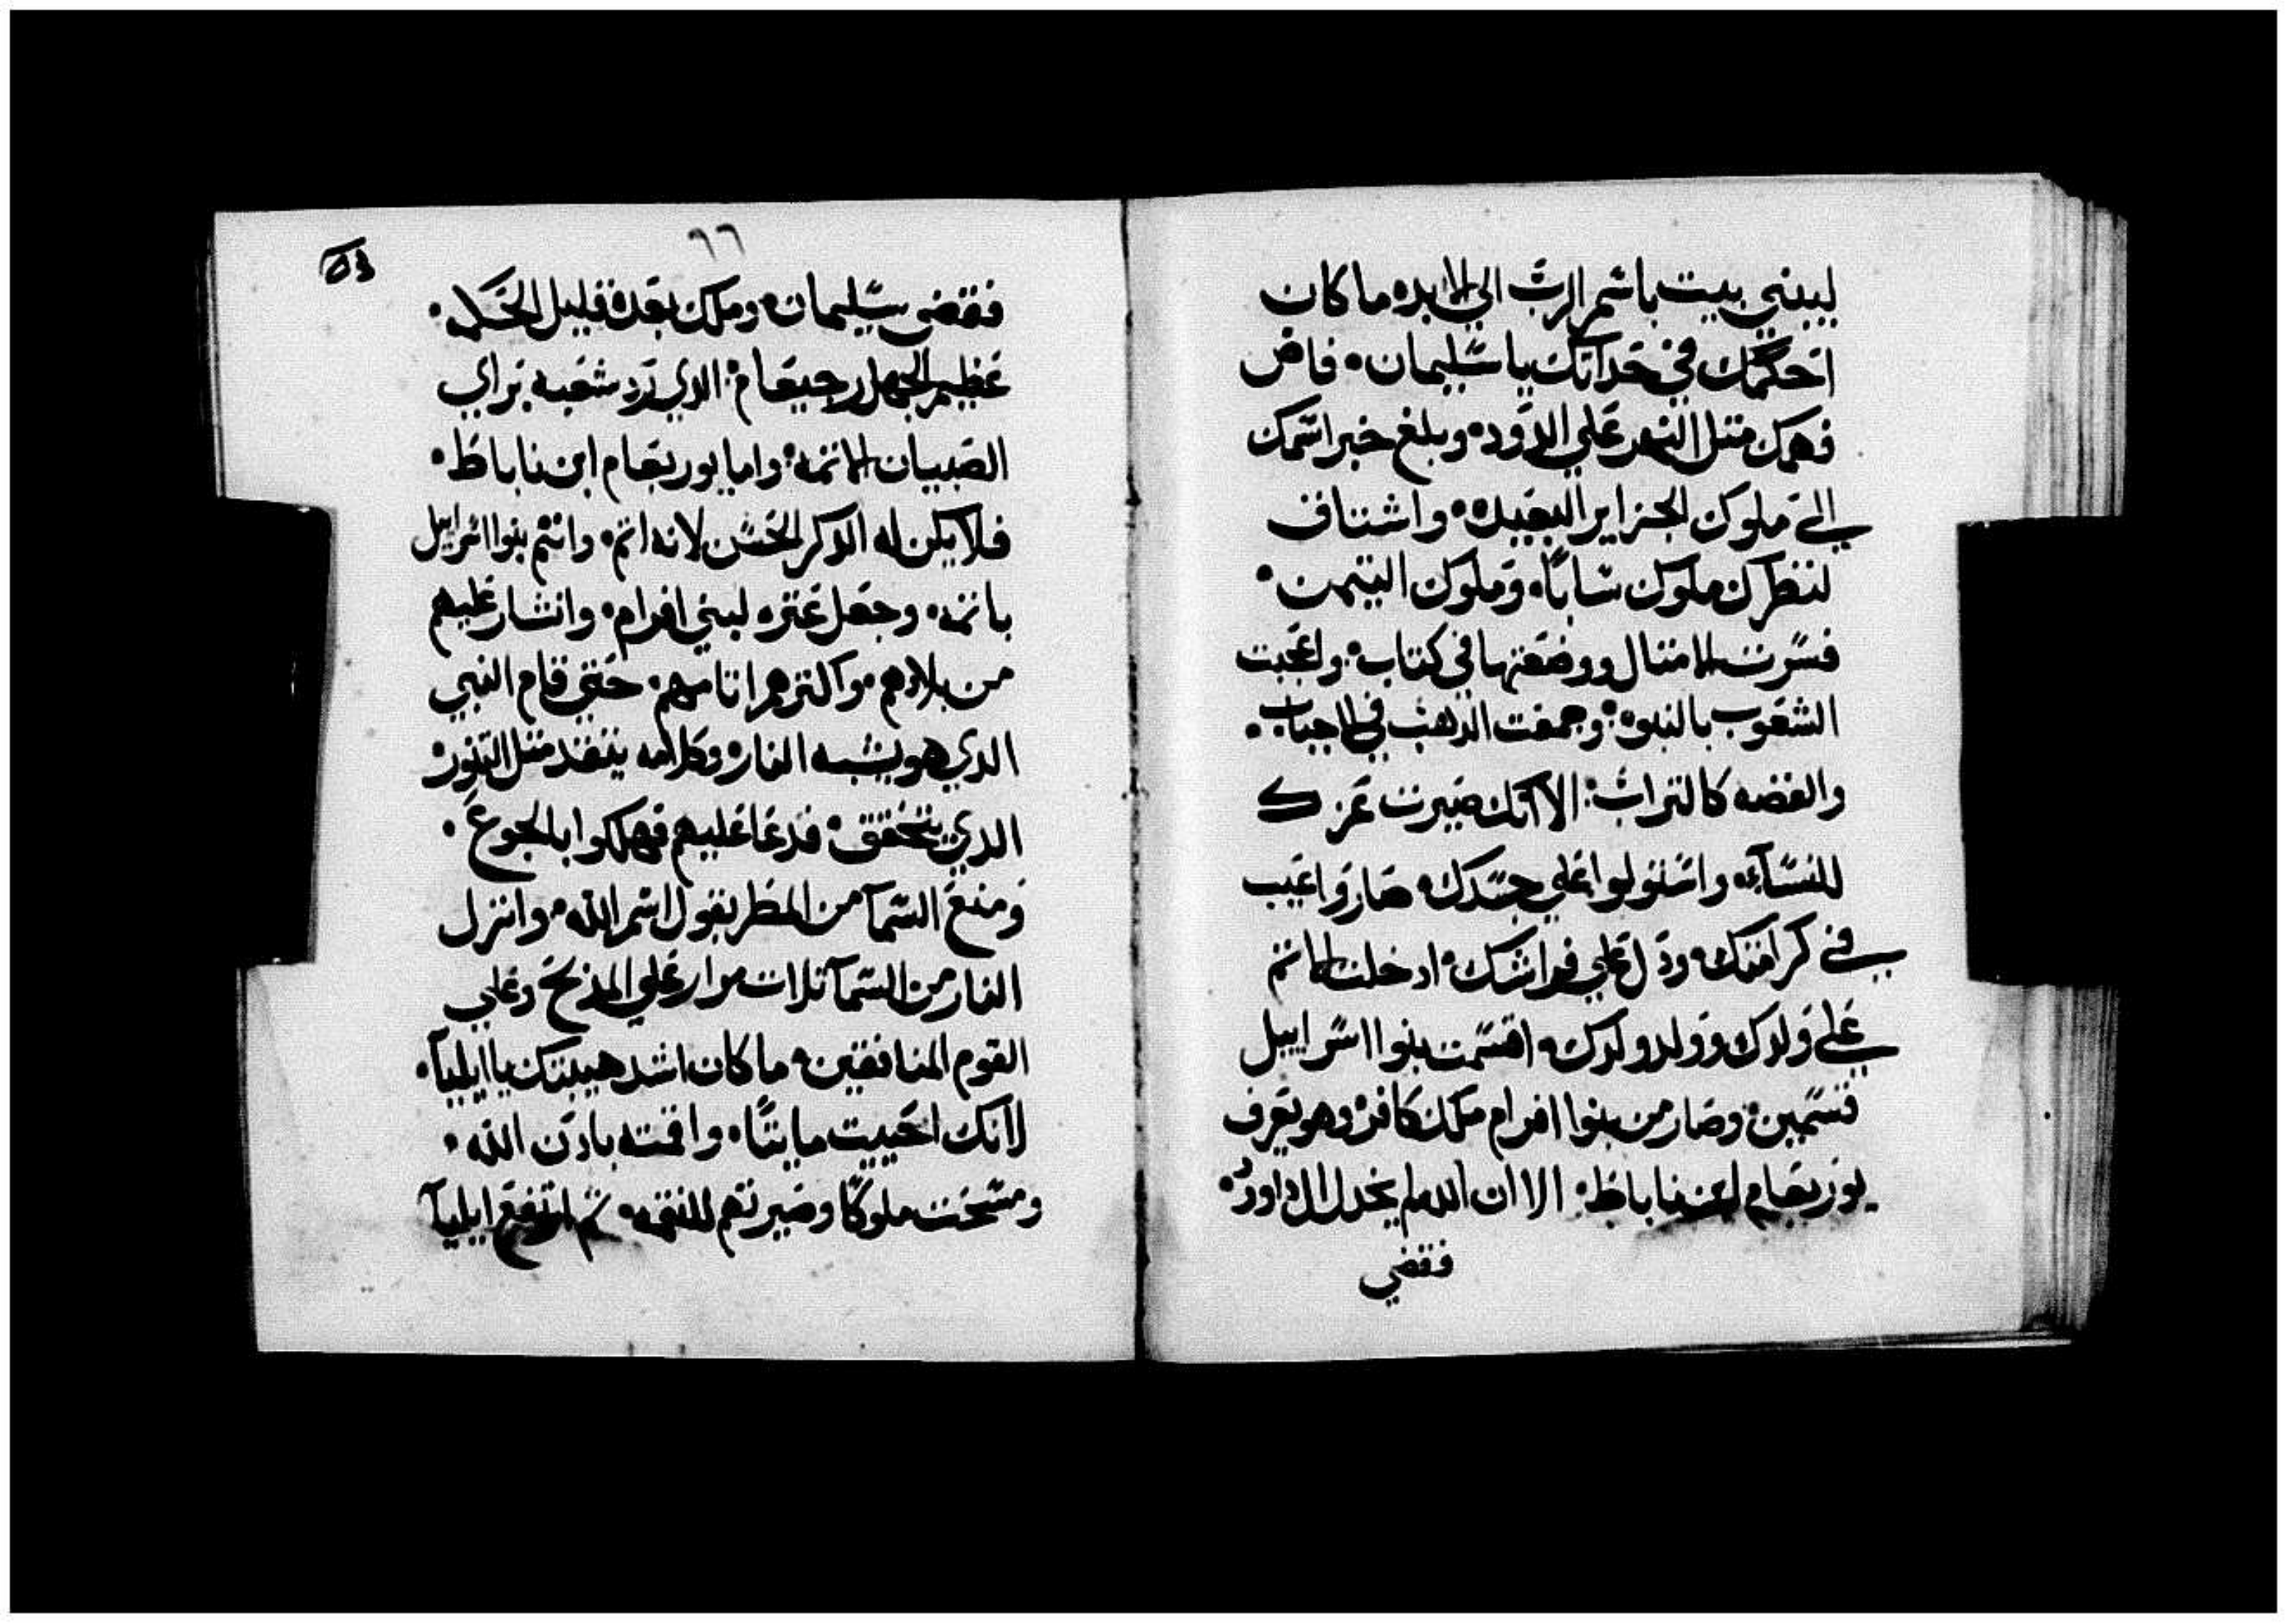 ليبني بيت باسم الرب الي الابد، ما كان
احكمك في حداثتك يا سليمان، فاض
فهمك متل النهر علي الدود، وبلغ خبر اسمك
الي ملوك الجزاير البعيده، واشتاق
لنظرك ملوك سابا، وملوك التيمن،
فسرت الامتال ووضعتها في كتاب، واعجبت
الشعوب بالنبوه، وجمعت الدهب في
والفضه كالتراب، الا انك صيرت عزك
للنساء، واستولوا علي جسدك، صاروا عيب
في كرامتك، ودل علي فراشك، ادخلت الاتم
علي ولدك وولد ولدك، اقتسمت بنوا اسراييل
قسمين، وصار من بنوا افرام ملك كافر، وهو يعرف
يوربعام ابن ناباط، الا ان الله لم يخدل ال داوود،
فقضي
٦٦
فقضي سليمان، وملك بعده قليل الخلاه،
عظيم الجهل رحبعام، الدي رد شعبه براي
الصبيان الاتمه، واما يوربعام ابن ناباط،
فلا يكن له الدكر الحسن لانه اتم، واتم بنوا اسراييل
باتمه، وجعل عتره لبني افرام، وانشار عليهم
من بلادهم، واكترهم اتامهم، حتي قام النبي
الدي هو يشبه النار، وكلامه يتقد متل التنور
الدي يتحقق، فدعا عليهم فهلكوا بالجوع،
ومنع السما من المطر بقول اسم الله، وانزل
النار من السما تلات مرار علي المدبح وعلي
القوم المنافقين، ما كان اشد هيبتك يا ايليا،
لانك احييت مايتا، واقمته بادن الله،
ومسحت ملوكا وصيرتهم للنقمه، تم ارتفع ايليا